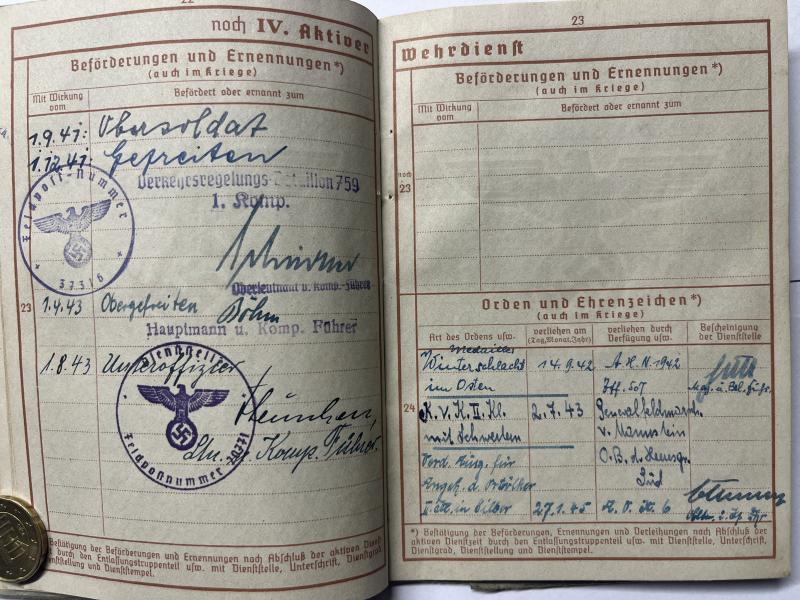 22
noch IV. Aktiver
Beförderungen und Ernennungen*)
(auch im Kriege)
Mit Wirkung vom
Befördert oder ernannt zum
1.9.41: Obersoldat
1.12.41: Gefreiten
Verkehrsregelungs-Bataillon 759
1. Komp.
Feldpost-Nummer
37316
Oberleutnant u. Komp.-Führer
23
1.4.43 Obergefreiten
Böhm
Hauptmann u. Komp. Führer
1.8.43 Unteroffizier
Dienststelle
Feldpostnummer
Ltn. u. Komp. Führer
Bestätigung der Beförderungen und Ernennungen nach Abschluß der aktiven Dienst-
durch den Entlassungstruppenteil usw. mit Dienststelle, Unterschrift, Dienstgrad,
Dienststellung und Dienststempel.
23
Wehrdienst
Beförderungen und Ernennungen*)
(auch im Kriege)
Mit Wirkung vom
Befördert oder ernannt zum
noch
23
Orden und Ehrenzeichen*)
(auch im Kriege)
Art des Ordens usw.
verliehen am
(Tag, Monat, Jahr)
verliehen durch
Verfügung usw.
Bescheinigung
der Dienststelle
Medaille
Winterschlacht 14.9.42 A.H.M. 1942
im Osten
24
K.V.K. II. Kl. 2.7.43 Generalfeldmarsch.
mit Schwertern v. Mannstein
O.B. d. Heeresgr.
Süd
Angeh. d. Ostvölker
II. Kl. in Silber 27.1.45
*) Bestätigung der Beförderungen, Ernennungen und Verleihungen nach Abschluß der
aktiven Dienstzeit durch den Entlassungstruppenteil usw. mit Dienststelle, Unterschrift,
Dienstgrad, Dienststellung und Dienststempel.